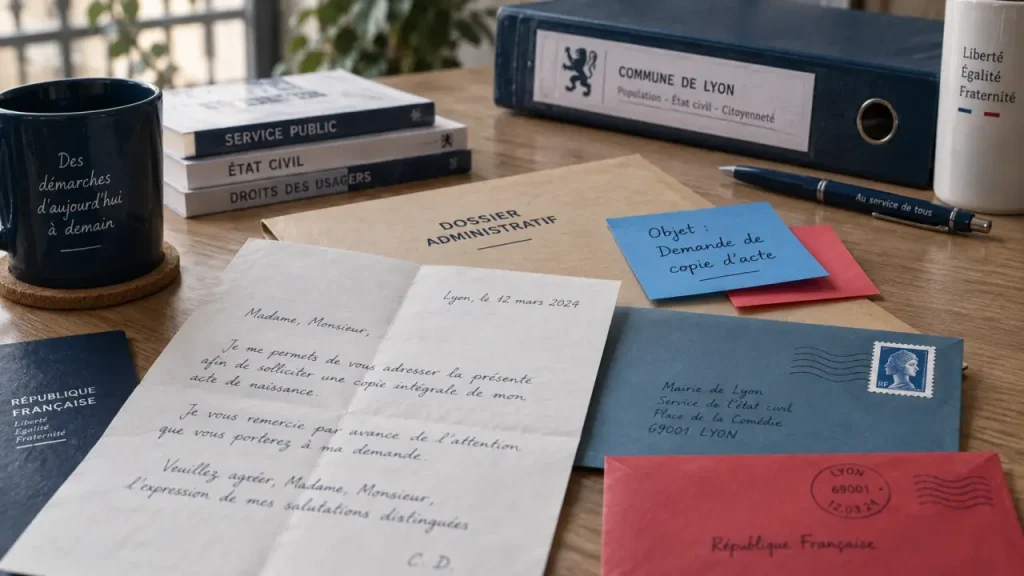 Des
démarches
d'aujourd'hui
à demain
SERVICE PUBLIC
ÉTAT CIVIL
DROITS DES USAGERS
COMMUNE DE LYON
Population - État civil - Citoyenneté
Liberté
Égalité
Fraternité
Au service de tous
DOSSIER
ADMINISTRATIF
Objet :
Demande de
copie d'acte
RÉPUBLIQUE
FRANÇAISE
Liberté
Égalité
Fraternité
Lyon, le 12 mars 2024
Madame, Monsieur,
Je me permets de vous adresser la présente
afin de solliciter une copie intégrale de mon
acte de naissance.
Je vous remercie par avance de l'attention
que vous porterez à ma demande.
Veuillez agréer, Madame, Monsieur,
l'expression de mes salutations distinguées
C. D.
RF
Mairie de Lyon
Service de l'état civil
Place de la Comédie
69001 LYON
LYON
69001
12.03.24
République Française